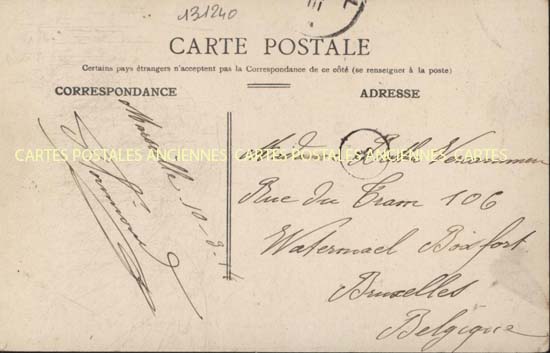 131240
CARTE POSTALE
Certains pays étrangers n'acceptent pas la Correspondance de ce côté (se renseigner à la poste)
CORRESPONDANCE
ADRESSE
Marseille 10-9-
CARTES POSTALES ANCIENNES CARTES POSTALES ANCIENNES CARTES
Rue du Tram 106
Watermael Boitfort
Bruxelles
Belgique